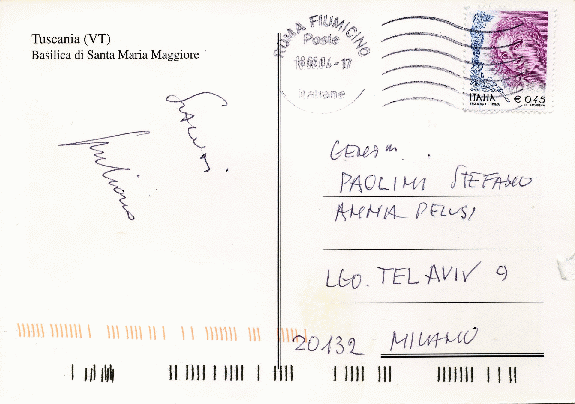 Tuscania (VT)
Basilica di Santa Maria Maggiore
ROMA FIUMICINO
Poste
Italiane
ITALIA
€ 0,45
SALUTI
Giuliano
GENT.MI
PAOLINI STEFANO
ANNA PELUSI
LGO. TEL AVIV 9
20132 MILANO